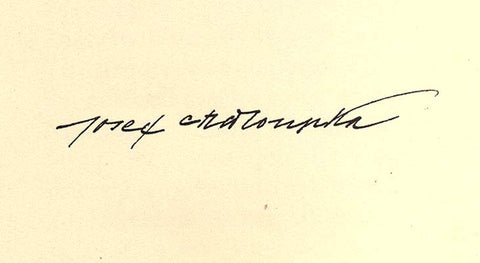 Josef Chaloupka